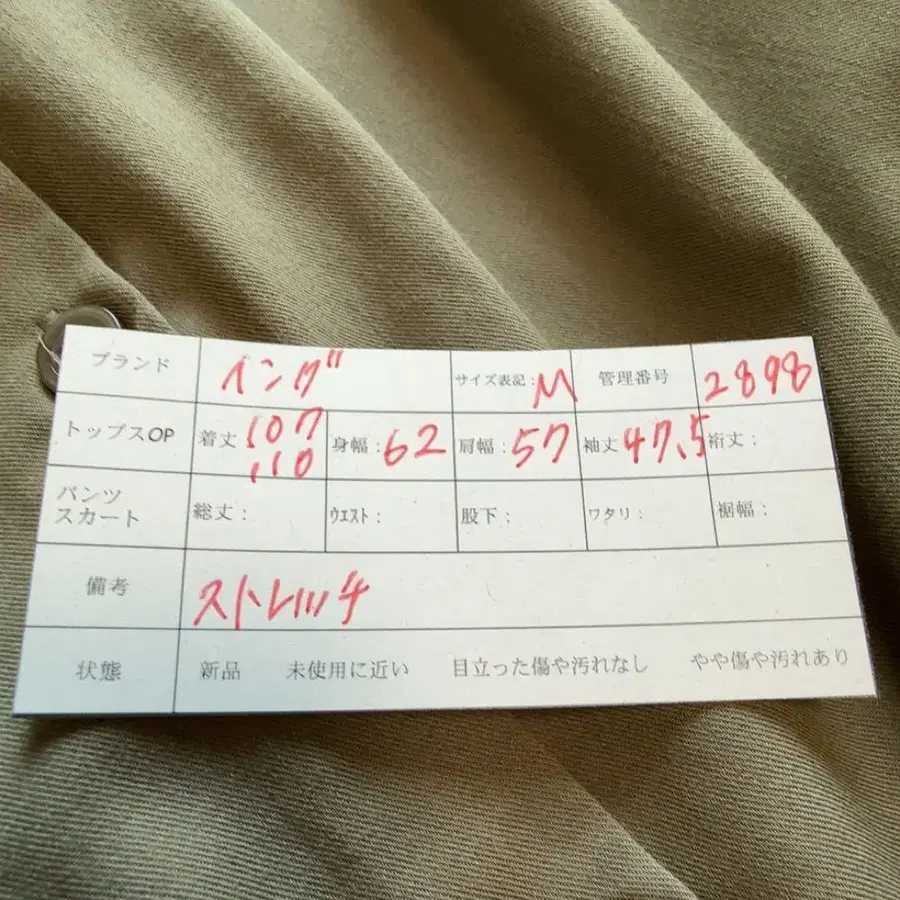 ブランド イング サイズ表記：M 管理番号 2898
トップスOP 着丈 107 身幅：62 肩幅：57 袖丈 47.5 裄丈：
110
パンツ 総丈： ウエスト： 股下： ワタリ： 裾幅：
スカート
備考 ストレッチ
状態 新品 未使用に近い 目立った傷や汚れなし やや傷や汚れあり